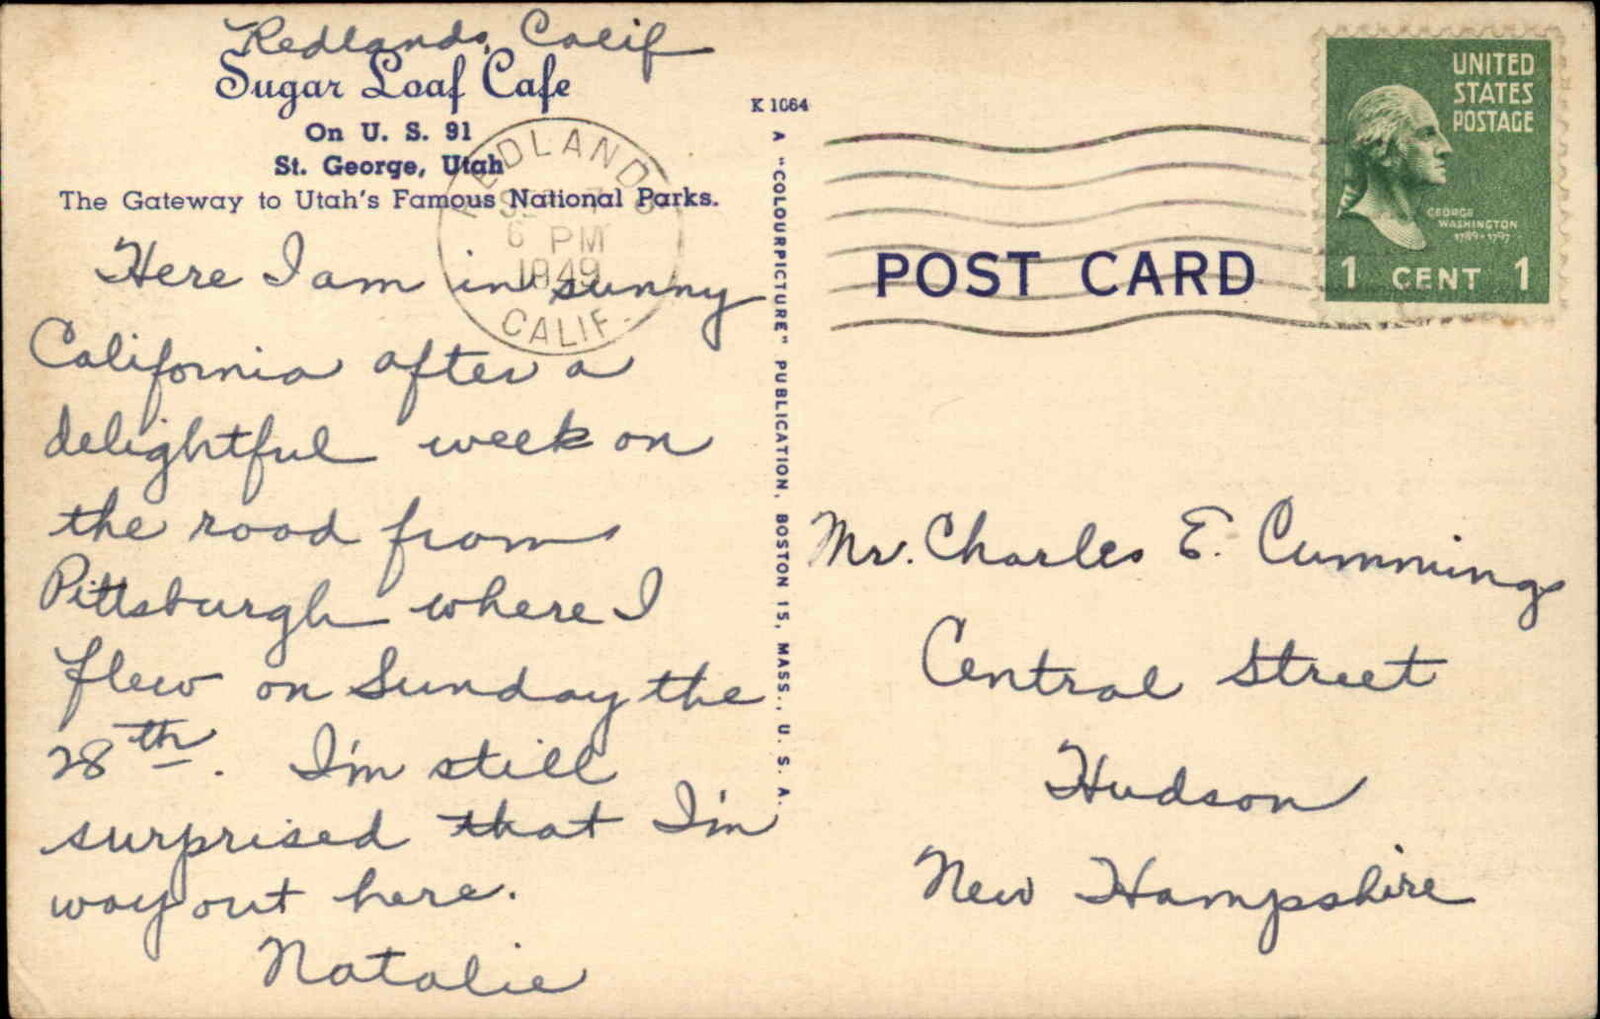 Redlands, Calif
Sugar Loaf Cafe
On U. S. 91
St. George, Utah
The Gateway to Utah's Famous National Parks.
Here I am in sunny
California after a
delightful week on
the road from
Pittsburgh where I
flew on Sunday the
28th. I'm still
surprised that I'm
way out here.
Natalie
REDLANDS
6 PM
1949
CALIF.
K 1064
A "COLOURPICTURE" PUBLICATION, BOSTON 15, MASS., U. S. A.
POST CARD
UNITED
STATES
POSTAGE
GEORGE
WASHINGTON
1789-1797
1 CENT 1
Mr. Charles E. Cummings
Central Street
Hudson
New Hampshire